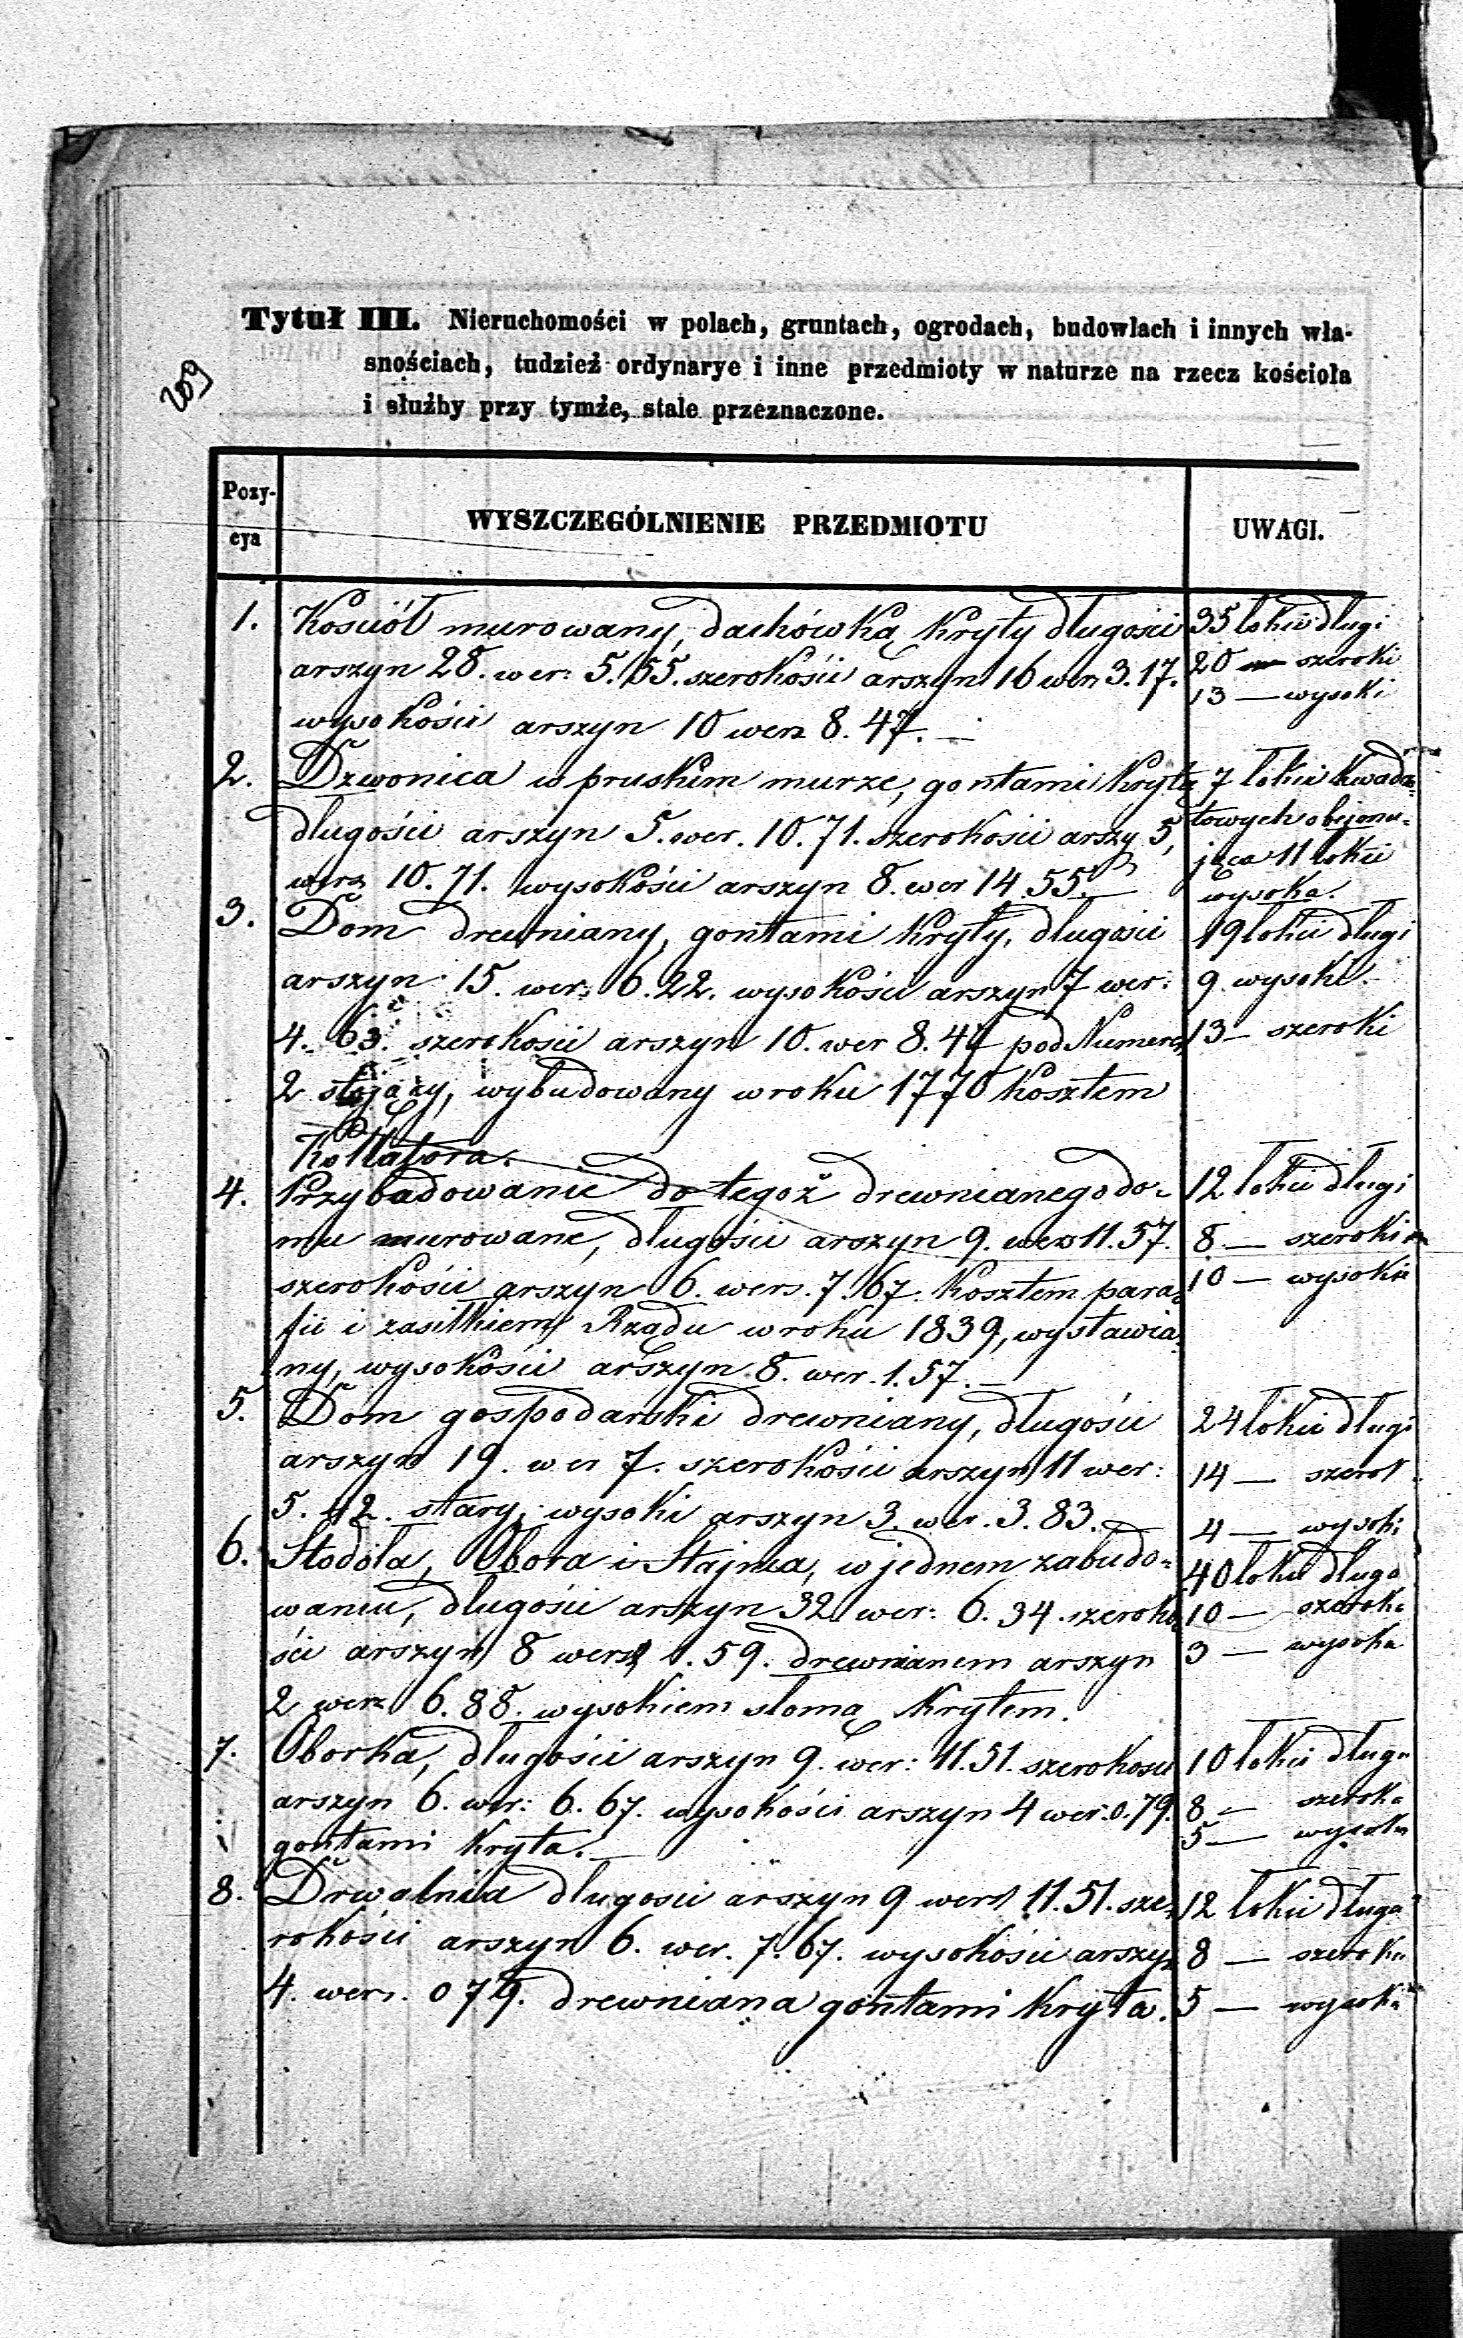 Tytuł III. Nieruchomości w polach, gruntach, ogrodach, budowlach i innych wła-
snościach, tudzież ordynarye i inne przedmioty w naturze na rzecz kościoła
i służby przy tymże, stale przeznaczone.
209
Pozy-
cya
WYSZCZEGÓLNIENIE PRZEDMIOTU
UWAGI.
1. Kościół murowany, dachówką kryty długości
arszyn 28. wer: 5.55. szerokości arszyn 16 wer. 3.17.
wysokości arszyn 10 wer. 8.47. —
35 łokci długi
20 — szeroki
13 — wysoki
2. Dzwonica w pruskim murze, gontami kryta
długości arszyn 5. wer. 10.71. szerokości arszy 5,
wers 10.71. wysokości arszyn 8. wer 14.55. —
7 łokci kwadra-
towych obejmu-
jąca 11 łokci
wysoka.
3. Dom drewniany, gontami kryty, długości
arszyn 15. wer: 6.22. wysokości arszyn 7 wer:
4.63. szerokości arszyn 10. wer 8.47 pod Numerem
2 stojący, wybudowany w roku 1770 kosztem
Kollatora.
19 łokci długi
9. wysoki.
13 — szeroki
4. Przybudowanie do tegoż drewnianego do-
mu murowane, długości arszyn 9. wer. 11.57.
szerokości arszyn 6. wers. 7.67. kosztem para-
fii i zasiłkiem Rządu w roku 1839, wystawia-
ny, wysokości arszyn 8. wer. 1.57. —
12 łokci długi
8 — szeroki
10 — wysoki
5. Dom gospodarski drewniany, długości
arszyn 19. wer 7. szerokości arszyn 11 wer:
5.42. stary, wysoki arszyn 3. wer. 3.83. —
24 łokci długi
14 — szerok
4 — wysoki
6. Stodoła, Obora i Stajnia, w jednem zabudo-
waniu, długości arszyn 32 wer: 6.34. szeroko-
ści arszyn 8 wers 1.59. drewnianem arszyn
2 wer. 6.88. wysokiem słomą krytem.
40 łokci długa
10 — szeroka
3 — wysoka
7. Oborka, długości arszyn 9. wer: 11.51. szerokości
arszyn 6. wer: 6.67. wysokości arszyn 4 wer. 0.79.
gontami kryta. —
10 łokci długa
8 — szeroka
5 — wysoka
8. Drwalnia długości arszyn 9 wers 11.51. sze-
rokości arszyn 6. wer. 7.67. wysokości arszyn
4. wers. 0 79. drewniana gontami kryta.
12 łokci długa
8 — szeroka
5 — wysoka